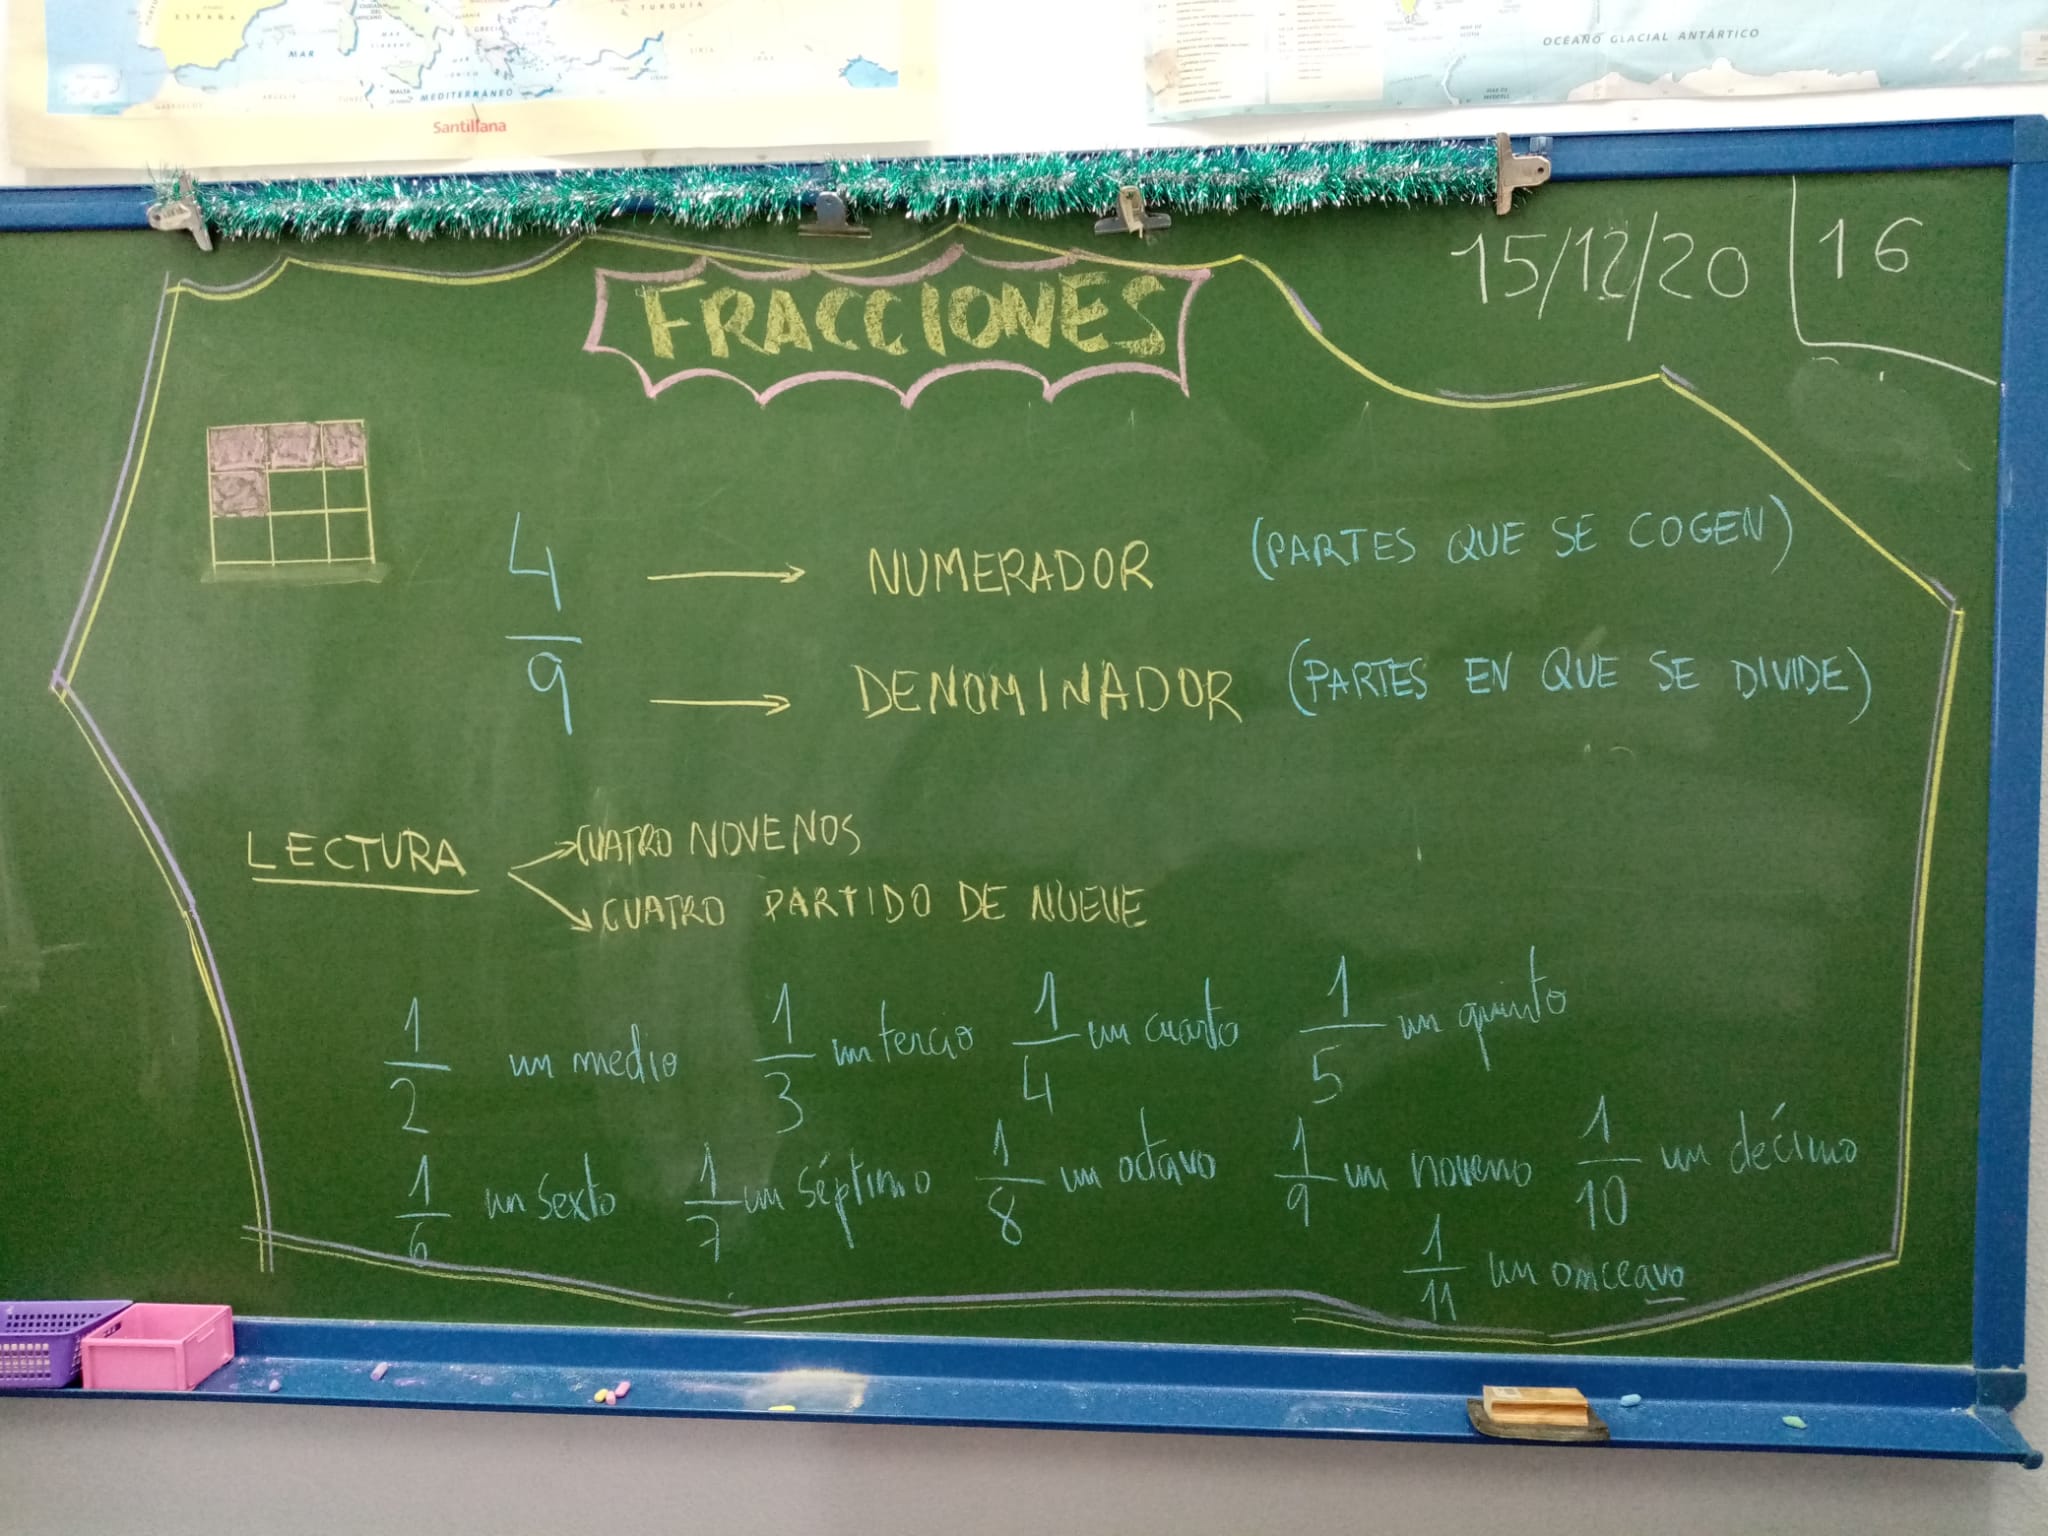 ESPAÑA
MAR
MAR
TIRRENO
GRECIA
TURQUÍA
SIRIA
IRAK
MAR
JÓNICO
MALTA
ARGELIA
MEDITERRÁNEO
MARRUECOS
Santillana
OCÉANO GLACIAL ANTÁRTICO
15/12/20 16
FRACCIONES
4 → NUMERADOR (PARTES QUE SE COGEN)
9 → DENOMINADOR (PARTES EN QUE SE DIVIDE)
LECTURA → CUATRO NOVENOS
→ CUATRO PARTIDO DE NUEVE
1/2 un medio 1/3 un tercio 1/4 un cuarto 1/5 un quinto
1/6 un sexto 1/7 un séptimo 1/8 un octavo 1/9 un noveno 1/10 un décimo
1/11 un onceavo